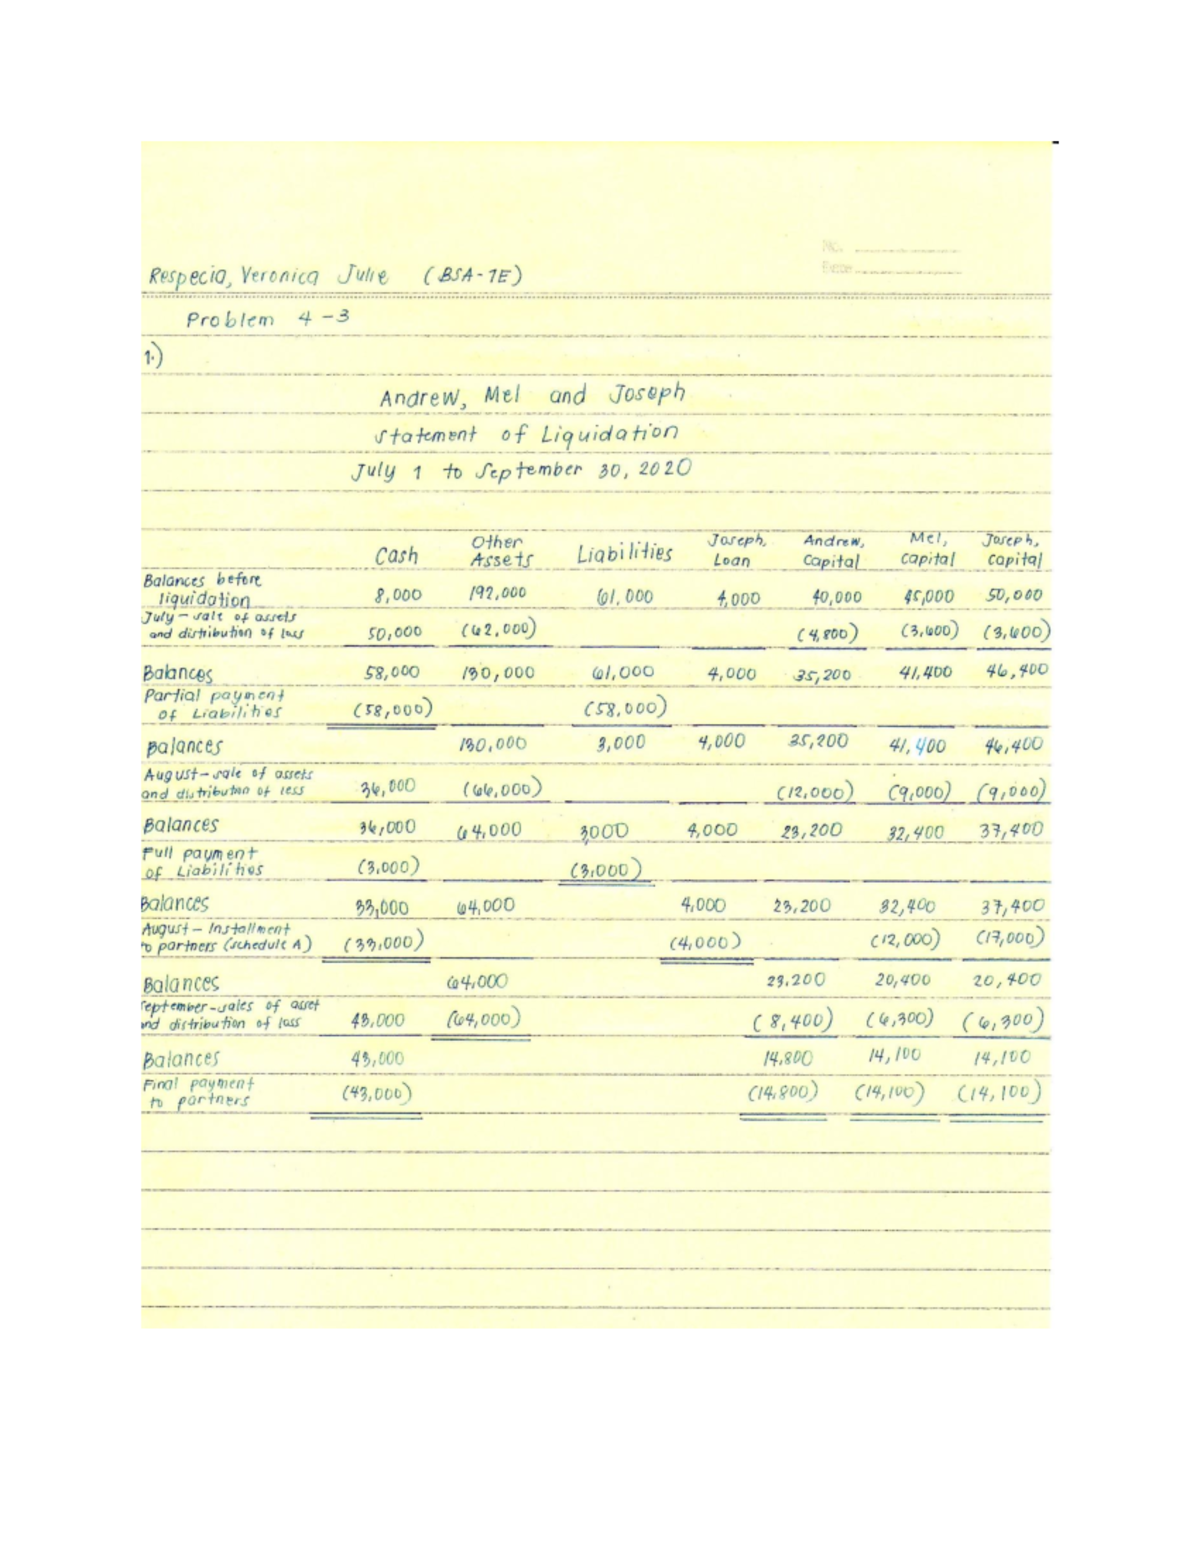 No.
Date
Respecia, Veronica Julie (BSA-1E)
Problem 4-3
1.)
Andrew, Mel and Joseph
Statement of Liquidation
July 1 to September 30, 2020
Cash Other Assets Liabilities Joseph, Loan Andrew, Capital Mel, capital Joseph, capital
Balances before
liquidation 8,000 192,000 61,000 4,000 40,000 45,000 50,000
July - sale of assets
and distribution of loss 50,000 (62,000) (4,800) (3,600) (3,600)
Balances 58,000 130,000 61,000 4,000 35,200 41,400 46,400
Partial payment
of Liabilities (58,000) (58,000)
Balances 130,000 3,000 4,000 35,200 41,400 46,400
August - sale of assets
and distributon of loss 36,000 (66,000) (12,000) (9,000) (9,000)
Balances 36,000 64,000 3000 4,000 23,200 32,400 37,400
Full payment
of Liabilities (3,000) (3,000)
Balances 33,000 64,000 4,000 23,200 32,400 37,400
August - Installment
to partners (schedule A) (33,000) (4,000) (12,000) (17,000)
Balances 64,000 23,200 20,400 20,400
September - sales of asset
and distribution of loss 43,000 (64,000) (8,400) (6,300) (6,300)
Balances 43,000 14,800 14,100 14,100
Final payment
to partners (43,000) (14,800) (14,100) (14,100)